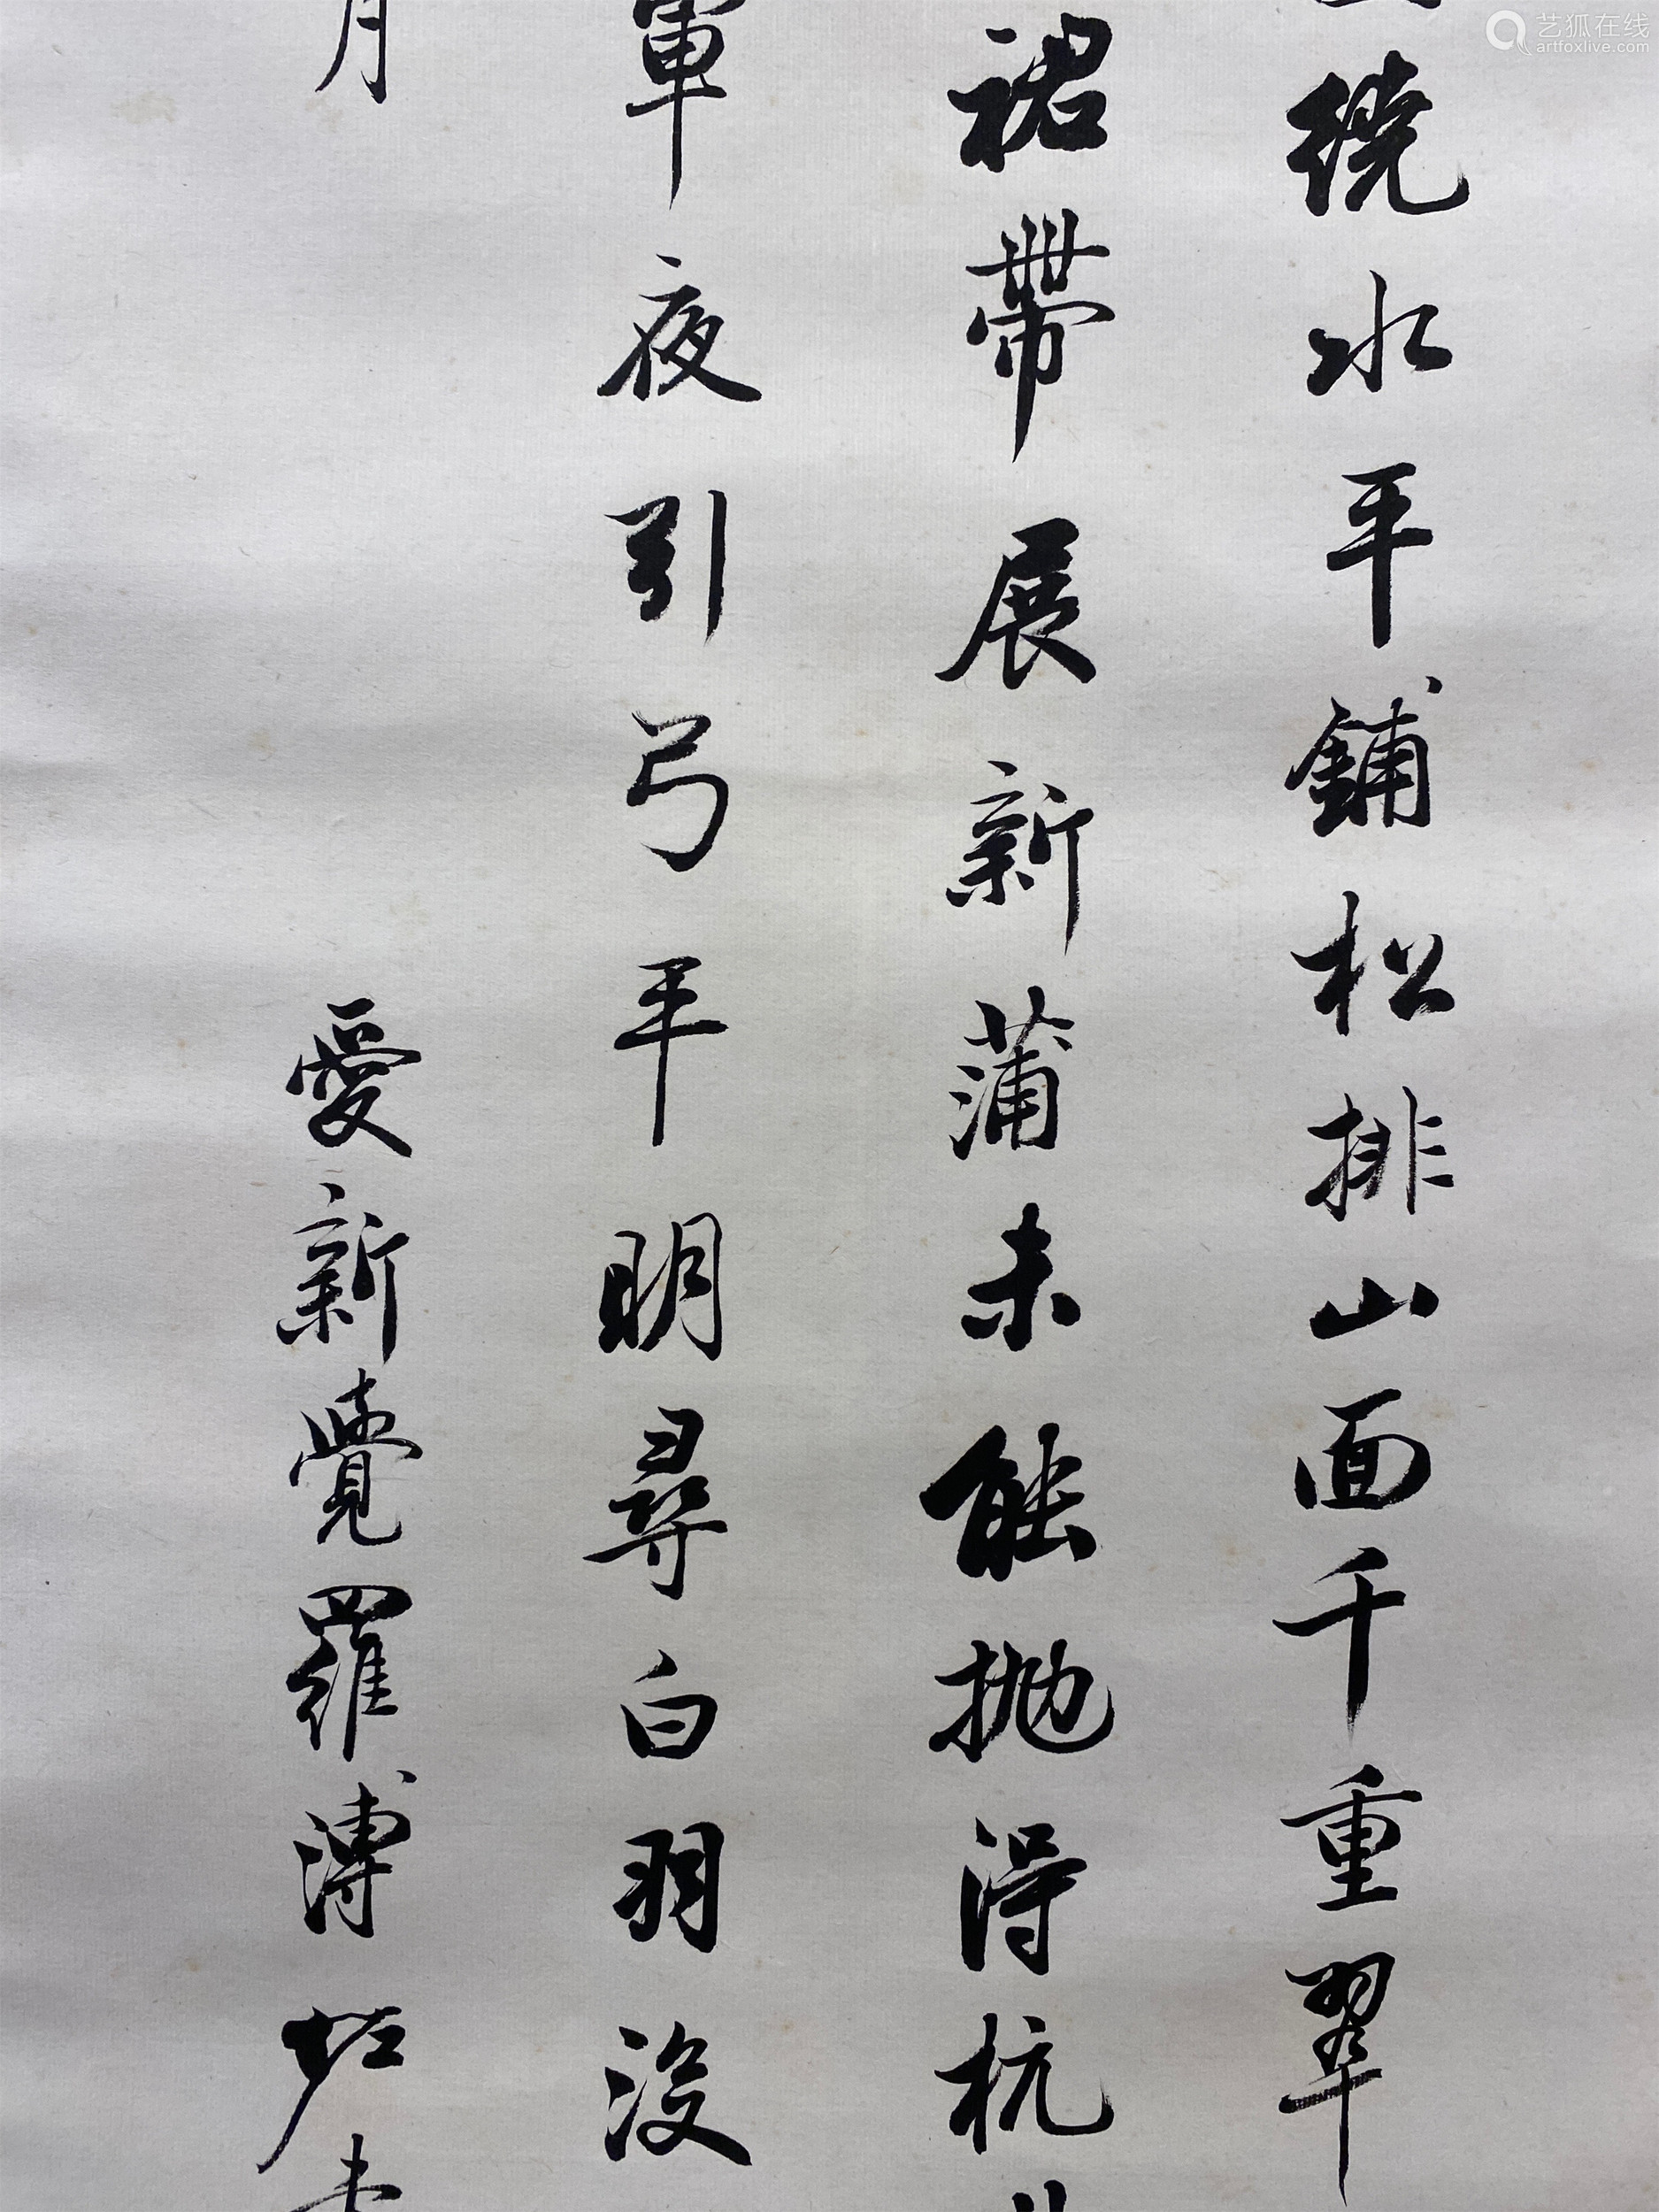 繞水平鋪松排山面千重翠
裙帶展新蒲未能拋得杭
軍夜引弓平明尋白羽沒
月
愛新覺羅溥㣂書
艺狐在线
artfoxlive.com